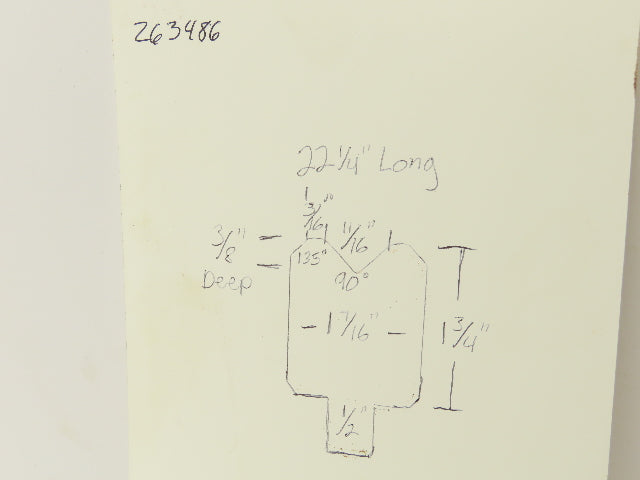 263486
22 1/4" Long
3/16"
3/8" Deep
11/16"
135°
90°
1 7/16"
1 3/4"
1/2"